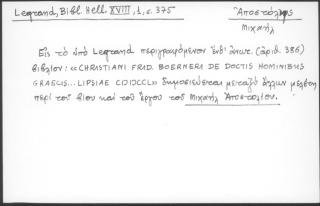 Legrand, Bibl. Hell. XVIII, 1, σ. 375
Ἀποστόλης
Μιχαήλ
Εἰς τὸ ὑπὸ Legrand περιγραφόμενον ἐνθ' ἀνωτ. (ἀριθ. 386)
βιβλίον: «CHRISTIANI FRID. BOERNERI DE DOCTIS HOMINIBUS
GRAECIS... LIPSIAE CIƆIƆCCL» δημοσιεύεται μεταξὺ ἄλλων μελέτη
περὶ τοῦ βίου καὶ τοῦ ἔργου τοῦ Μιχαὴλ Ἀποστολίου.